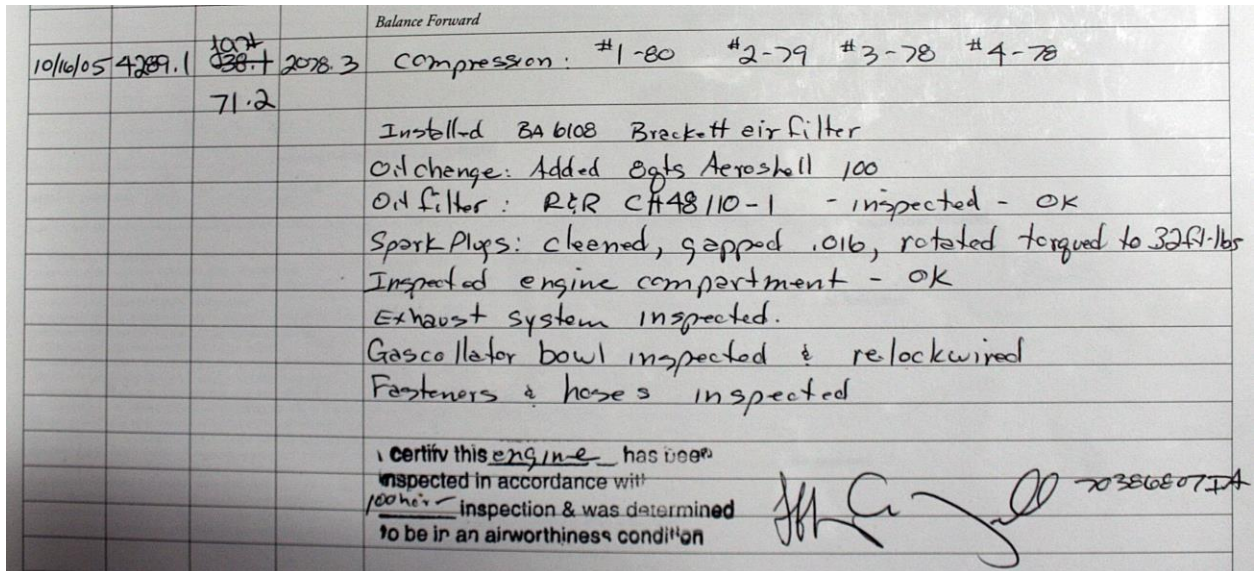 Balance Forward
10/16/05 4289.1 2078.3 Compression: #1-80 #2-79 #3-78 #4-78
71.2
Installed BA 6108 Brackett air filter
Oil change: Added 8qts Aeroshell 100
Oil filter: R&R CH48110-1 - inspected - OK
Spark Plugs: cleaned, gapped .016, rotated torqued to 32ft-lbs
Inspected engine compartment - OK
Exhaust system inspected.
Gascollator bowl inspected & relockwired
Fasteners & hoses inspected
I certify this engine has been
inspected in accordance with
100 hour inspection & was determined
to be in an airworthiness condition
70386807IA